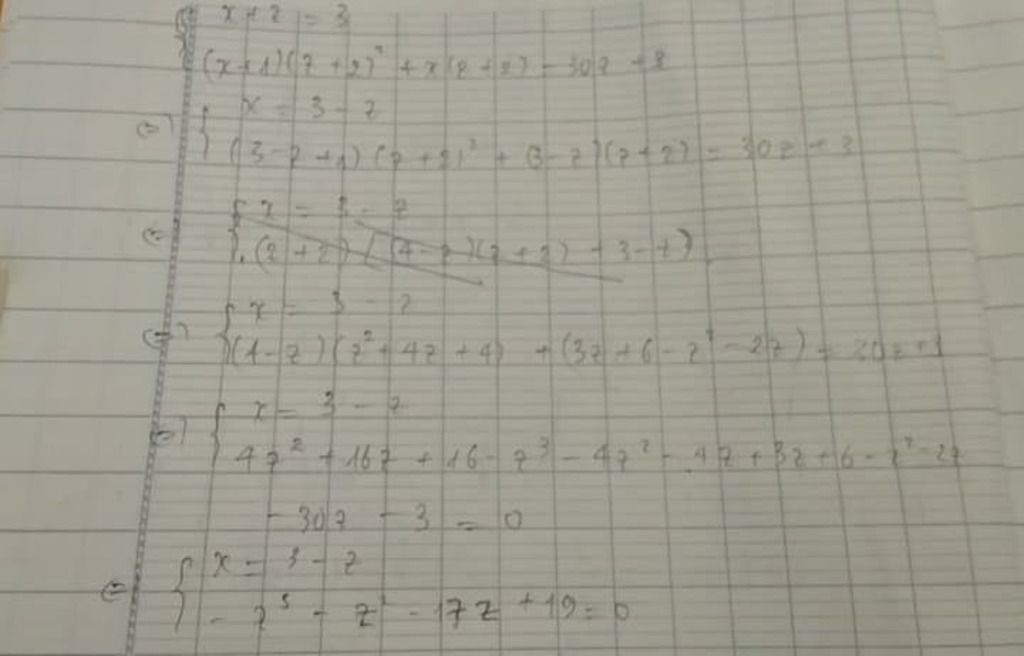 { x + z = 3
(x+1)(z+2)² + x(z+2) = 30z + 3
⇔ { x = 3 - z
(3-z+1)(z+2)² + (3-z)(z+2) = 30z + 3
⇔ { x = 3 - z
(z+2)((4-z)(z+2) + 3-z)
⇔ { x = 3 - z
(4-z)(z²+4z+4) + (3z+6-z²-2z) = 30z+3
⇔ { x = 3 - z
4z² + 16z + 16 - z³ - 4z² - 4z + 3z + 6 - z² - 2z
- 30z - 3 = 0
⇔ { x = 3 - z
- z³ - z² - 17z + 19 = 0